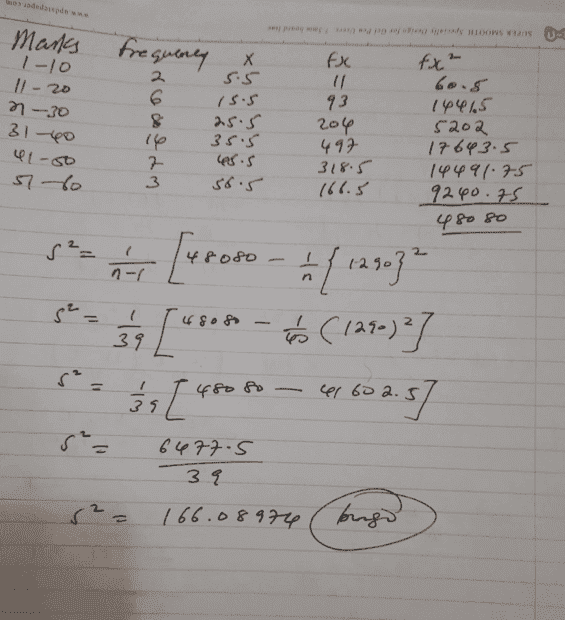 www.updatepaper.com
SUPER SMOOTH Specially Design for Gel Pen Users 7.5mm board line
Marks frequency X fx fx²
1-10 2 5.5 11 60.5
11-20 6 15.5 93 1441.5
21-30 8 25.5 204 5202
31-40 14 35.5 497 17643.5
41-50 7 45.5 318.5 14491.75
51-60 3 56.5 166.5 9240.75
48080
s² = 1/n-1 [48080 - 1/n {1290}²
s² = 1/39 [48080 - 1/40 (1290)²]
s² = 1/39 [48080 - 41602.5]
s² = 6477.5
39
s² = 166.08974 bingo